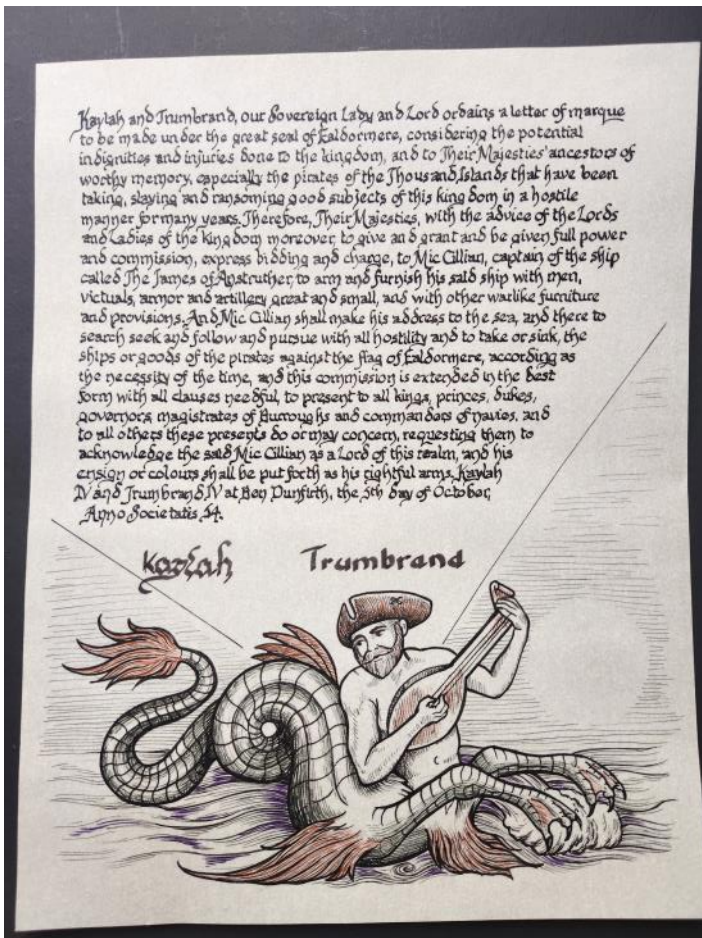 Kaylah and Trumbrand, our Sovereign Lady and Lord ordains a letter of marque
to be made under the great seal of Ealdormere, considering the potential
indignities and injuries done to the kingdom, and to Their Majesties' ancestors of
worthy memory, especially the pirates of the Thousand Islands that have been
taking, slaying and ransoming good subjects of this kingdom in a hostile
manner for many years. Therefore, Their Majesties, with the advice of the Lords
and Ladies of the kingdom moreover, to give and grant and be given full power
and commission, express bidding and charge, to Mic Gillian, captain of the ship
called The James of Anstruther, to arm and furnish his said ship with men,
victuals, armor and artillery great and small, and with other warlike furniture
and provisions. And Mic Gillian shall make his address to the sea, and there to
search seek and follow and pursue with all hostility and to take or sink, the
ships or goods of the pirates against the flag of Ealdormere, according as
the necessity of the time, and this commission is extended in the best
form with all clauses needful, to present to all kings, princes, dukes,
governors, magistrates of Burroughs and commandars of navies, and
to all others these presents do or may concern, requesting them to
acknowledge the said Mic Gillian as a Lord of this realm, and his
ensign or colours shall be put forth as his rightful arms. Kaylah
IV and Trumbrand IV at Ben Dunfirth, the 5th day of October,
Anno Societatis 54.
Kaylah Trumbrand